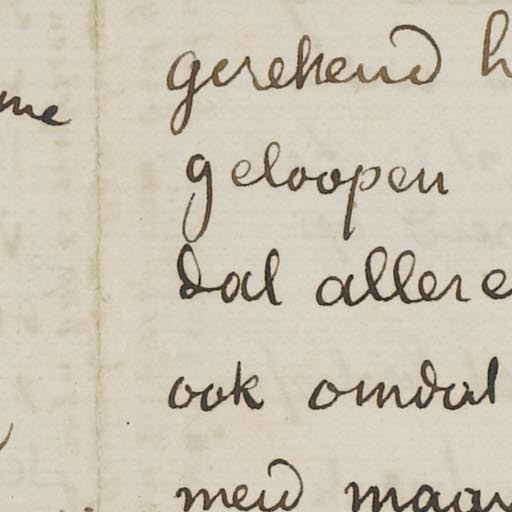 gerekend h
me
geloopen
dat allere
ook omdat
meid maar